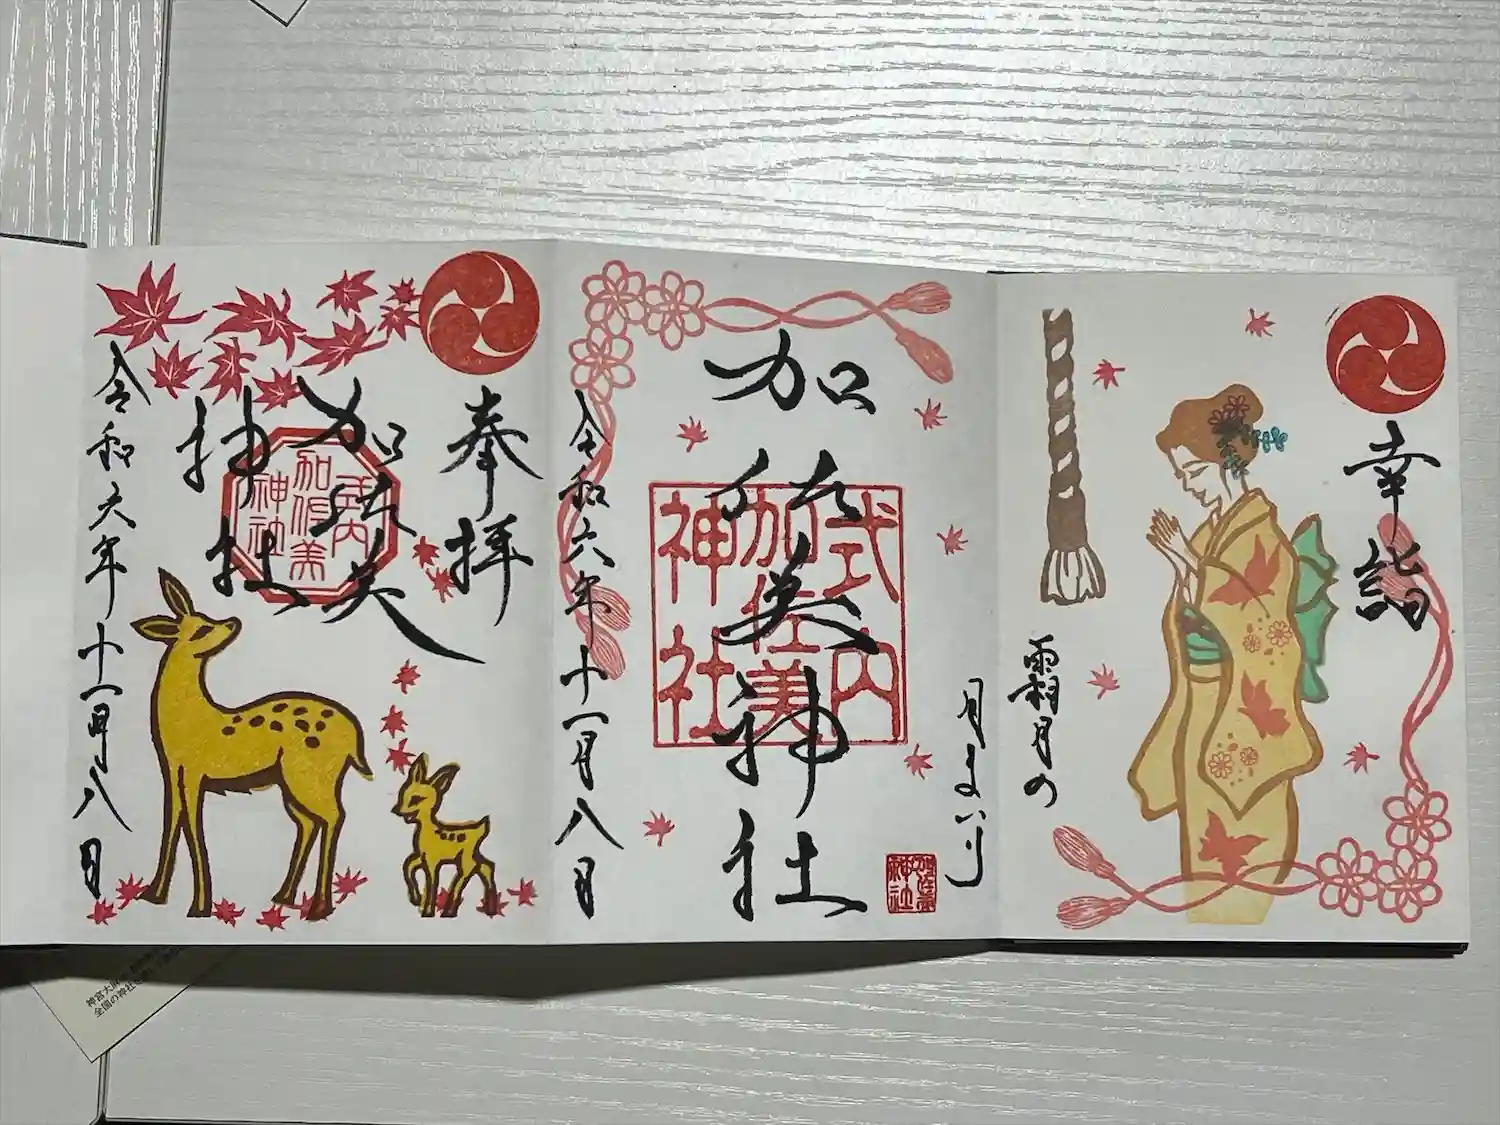 幸詣
霜月の
月まいり
加佐美神社
式内
加佐美
神社
加佐美
神社
令和六年十一月八日
奉拝
加佐美
神社
式内
加佐美
神社
令和六年十一月八日
神宮大麻
全国の神社